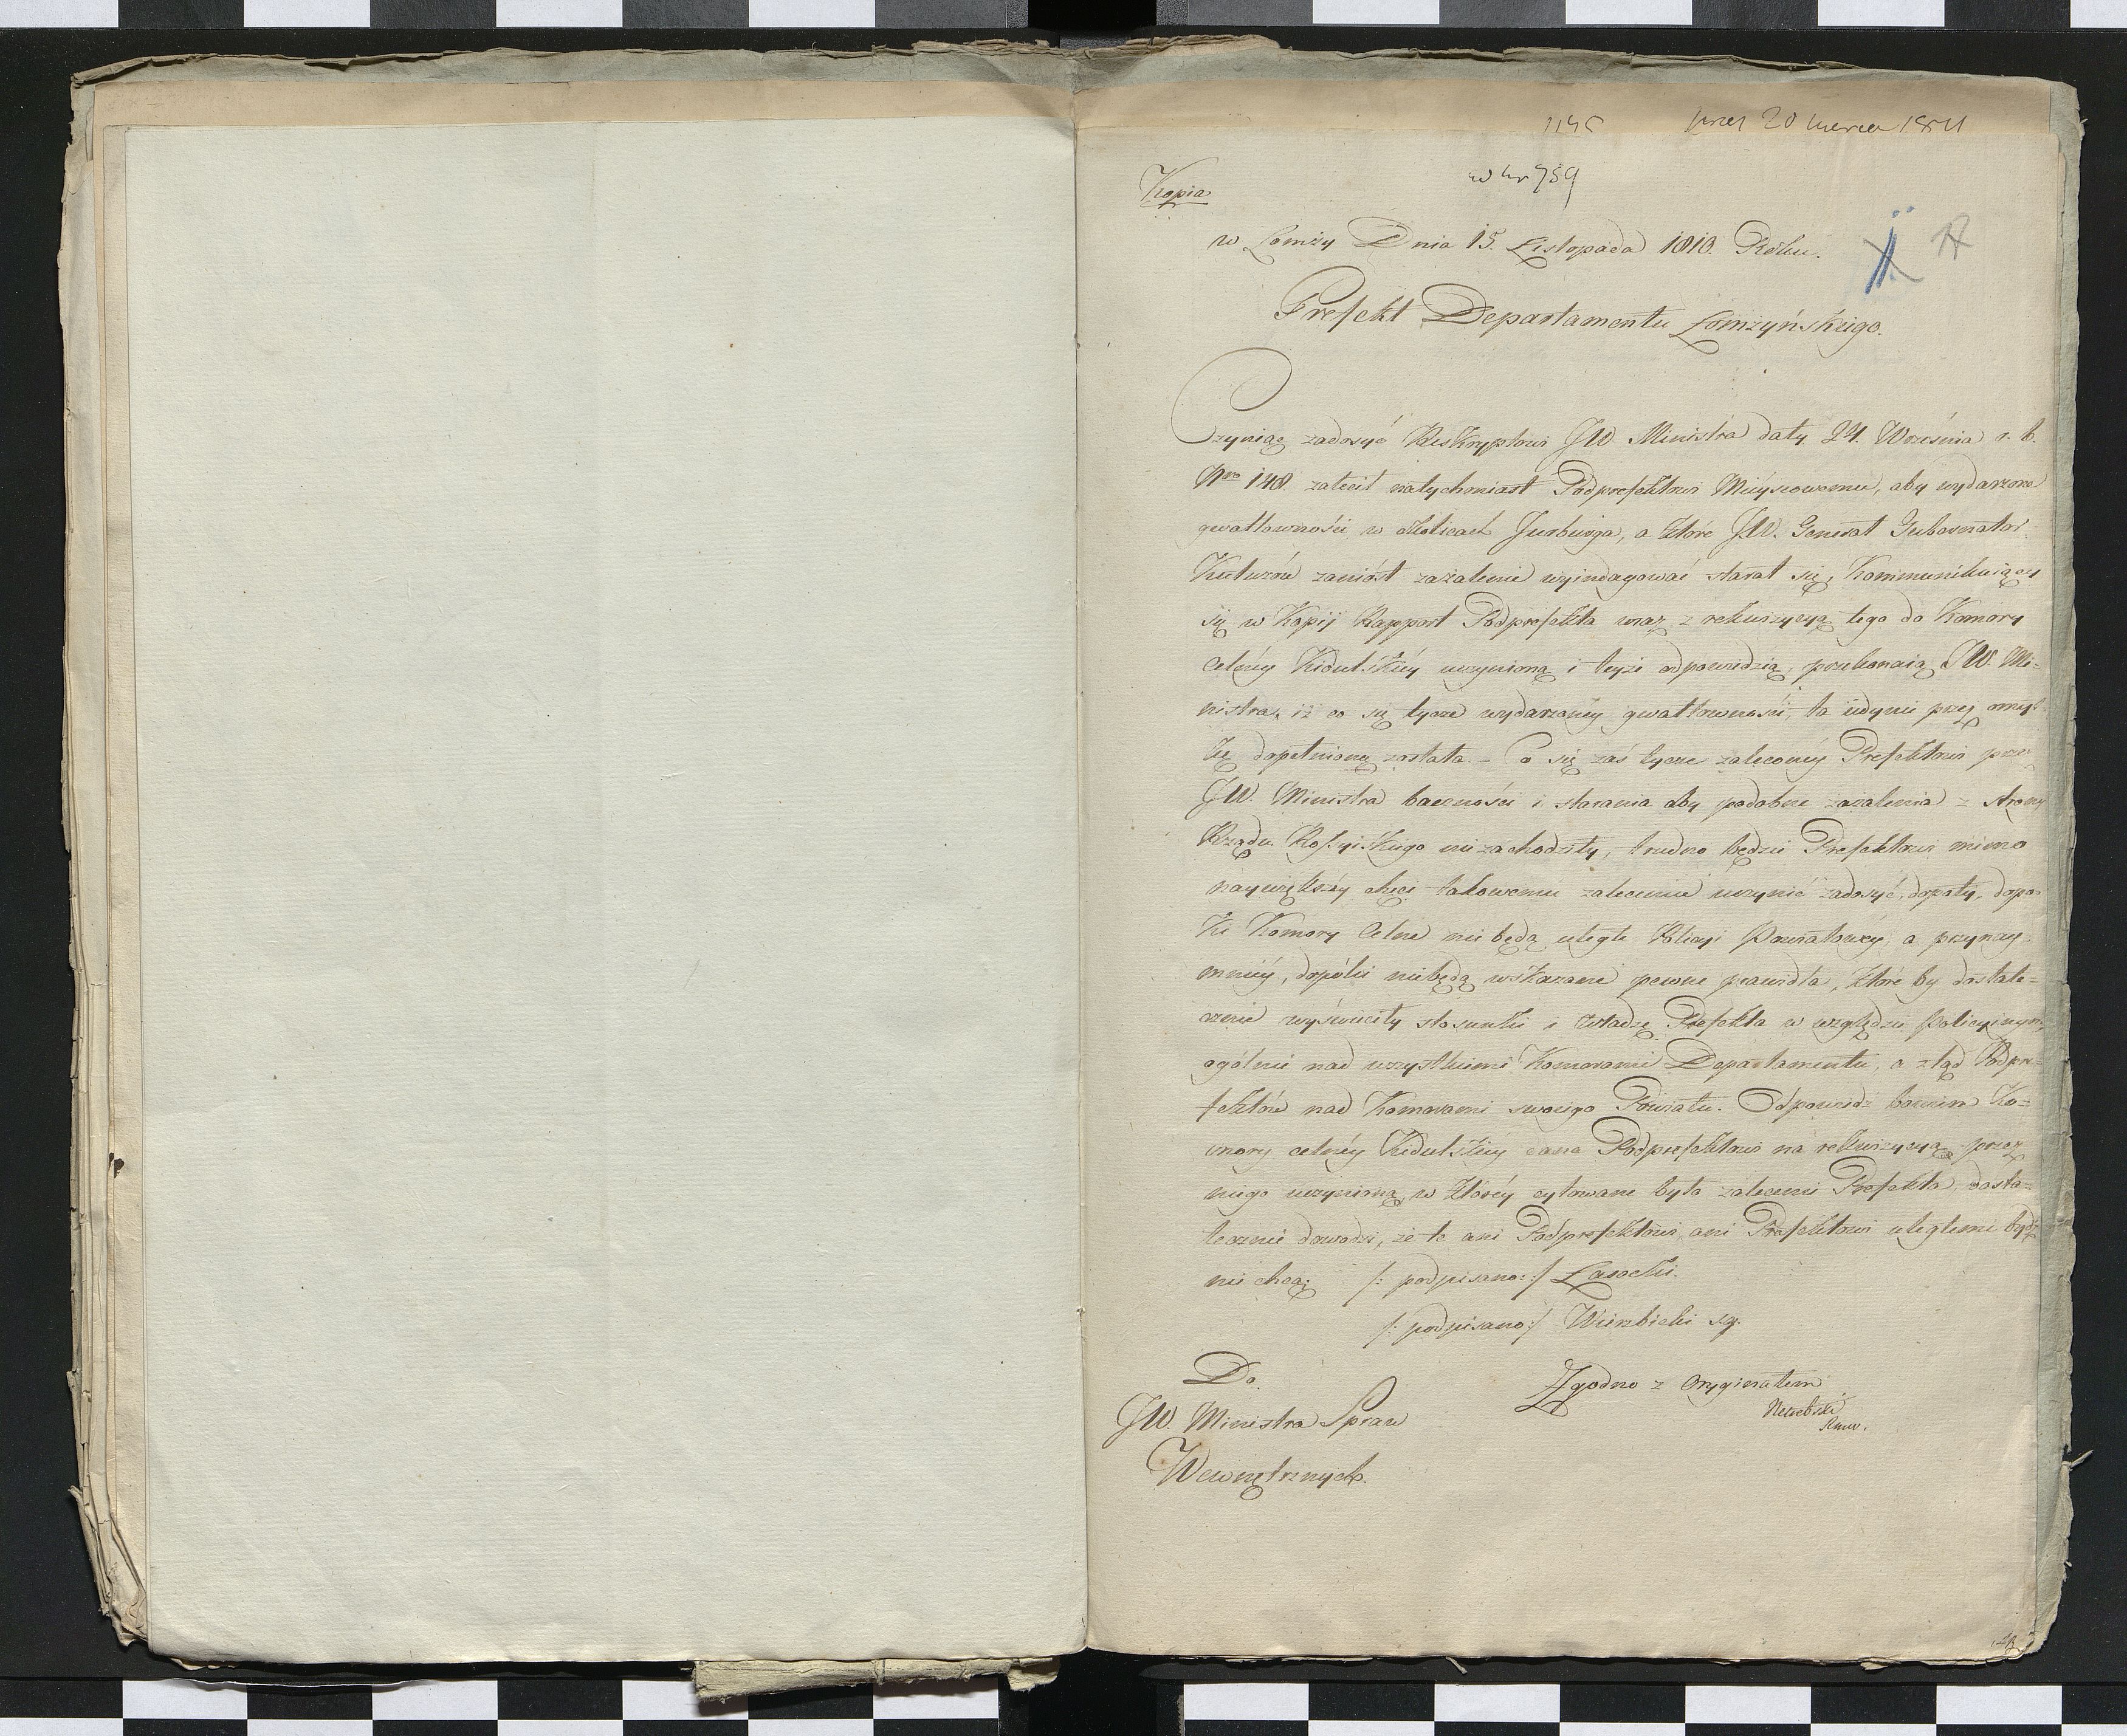 1145
20 1811
759
Kopia
w Łomży Dnia 15. Listopada 1810. Roku.
Prefekt Departamentu Łomżyńskiego.
Czyniąc zadosyć Reskryptowi JW Ministra daty 24. Września r. b.
Nro 148. zalecił natychmiast Podprefektowi Mieyscowemu, aby wydarzone
gwałtowności w okolicach Jurburga, o które JW. Generał Gubernator
Kutuzów zaniósł zażalenie wyindagować starał się, Kommunikuiący
się w Kopij Rapport Podprefekta wraz z rekwizycyą tego do Komory
Celnéy Kidulskiéy uczynioną i teyże odpowiedzią, przekonaią JW. Mi-
nistra, iż co się tycze wydarzonéy gwałtowności, ta iedynie przez omył
kę dopełnioną została. - Co się zaś tycze zaleconéy Prefektowi przez
JW. Ministra baczności i starania aby podobne zażalenia z strony
Rządu Rossyiskiego nie zachodziły, trudno będzie Prefektowi mimo
naywiększéy chęci takowemu zaleceniu uczynić zadosyć, dopóty, dopó-
ki Komory Celne nie będą uległe Policyi Powiatowéy, a przynay-
mniéy, dopóki niebędą wskazane pewne prawidła, które by dostate-
cznie wyświeciły stosunki i władzę Prefekta w względzie Policyinym,
ogólnie nad wszystkiemi Komorami Departamentu, a ztąd Podpre-
fektów nad Komorami swoiego Powiatu. Odpowiedź bowiem Ko-
mory celnéy Kidulskiéy dana Podprefektowi na rekwizycyą przez
niego uczynioną, w któréy cytowane było zalecenie Prefekta, dosta-
tecznie dowodzi, że te ani Podprefektowi ani Prefektowi uległemi bydź
nie chcą; /: podpisano :/ Lasocki.
/: podpisano :/ Wierzbicki sg.
Do.
JW. Ministra Spraw
Wewnętrznych.
Zgodno z Oryginałem